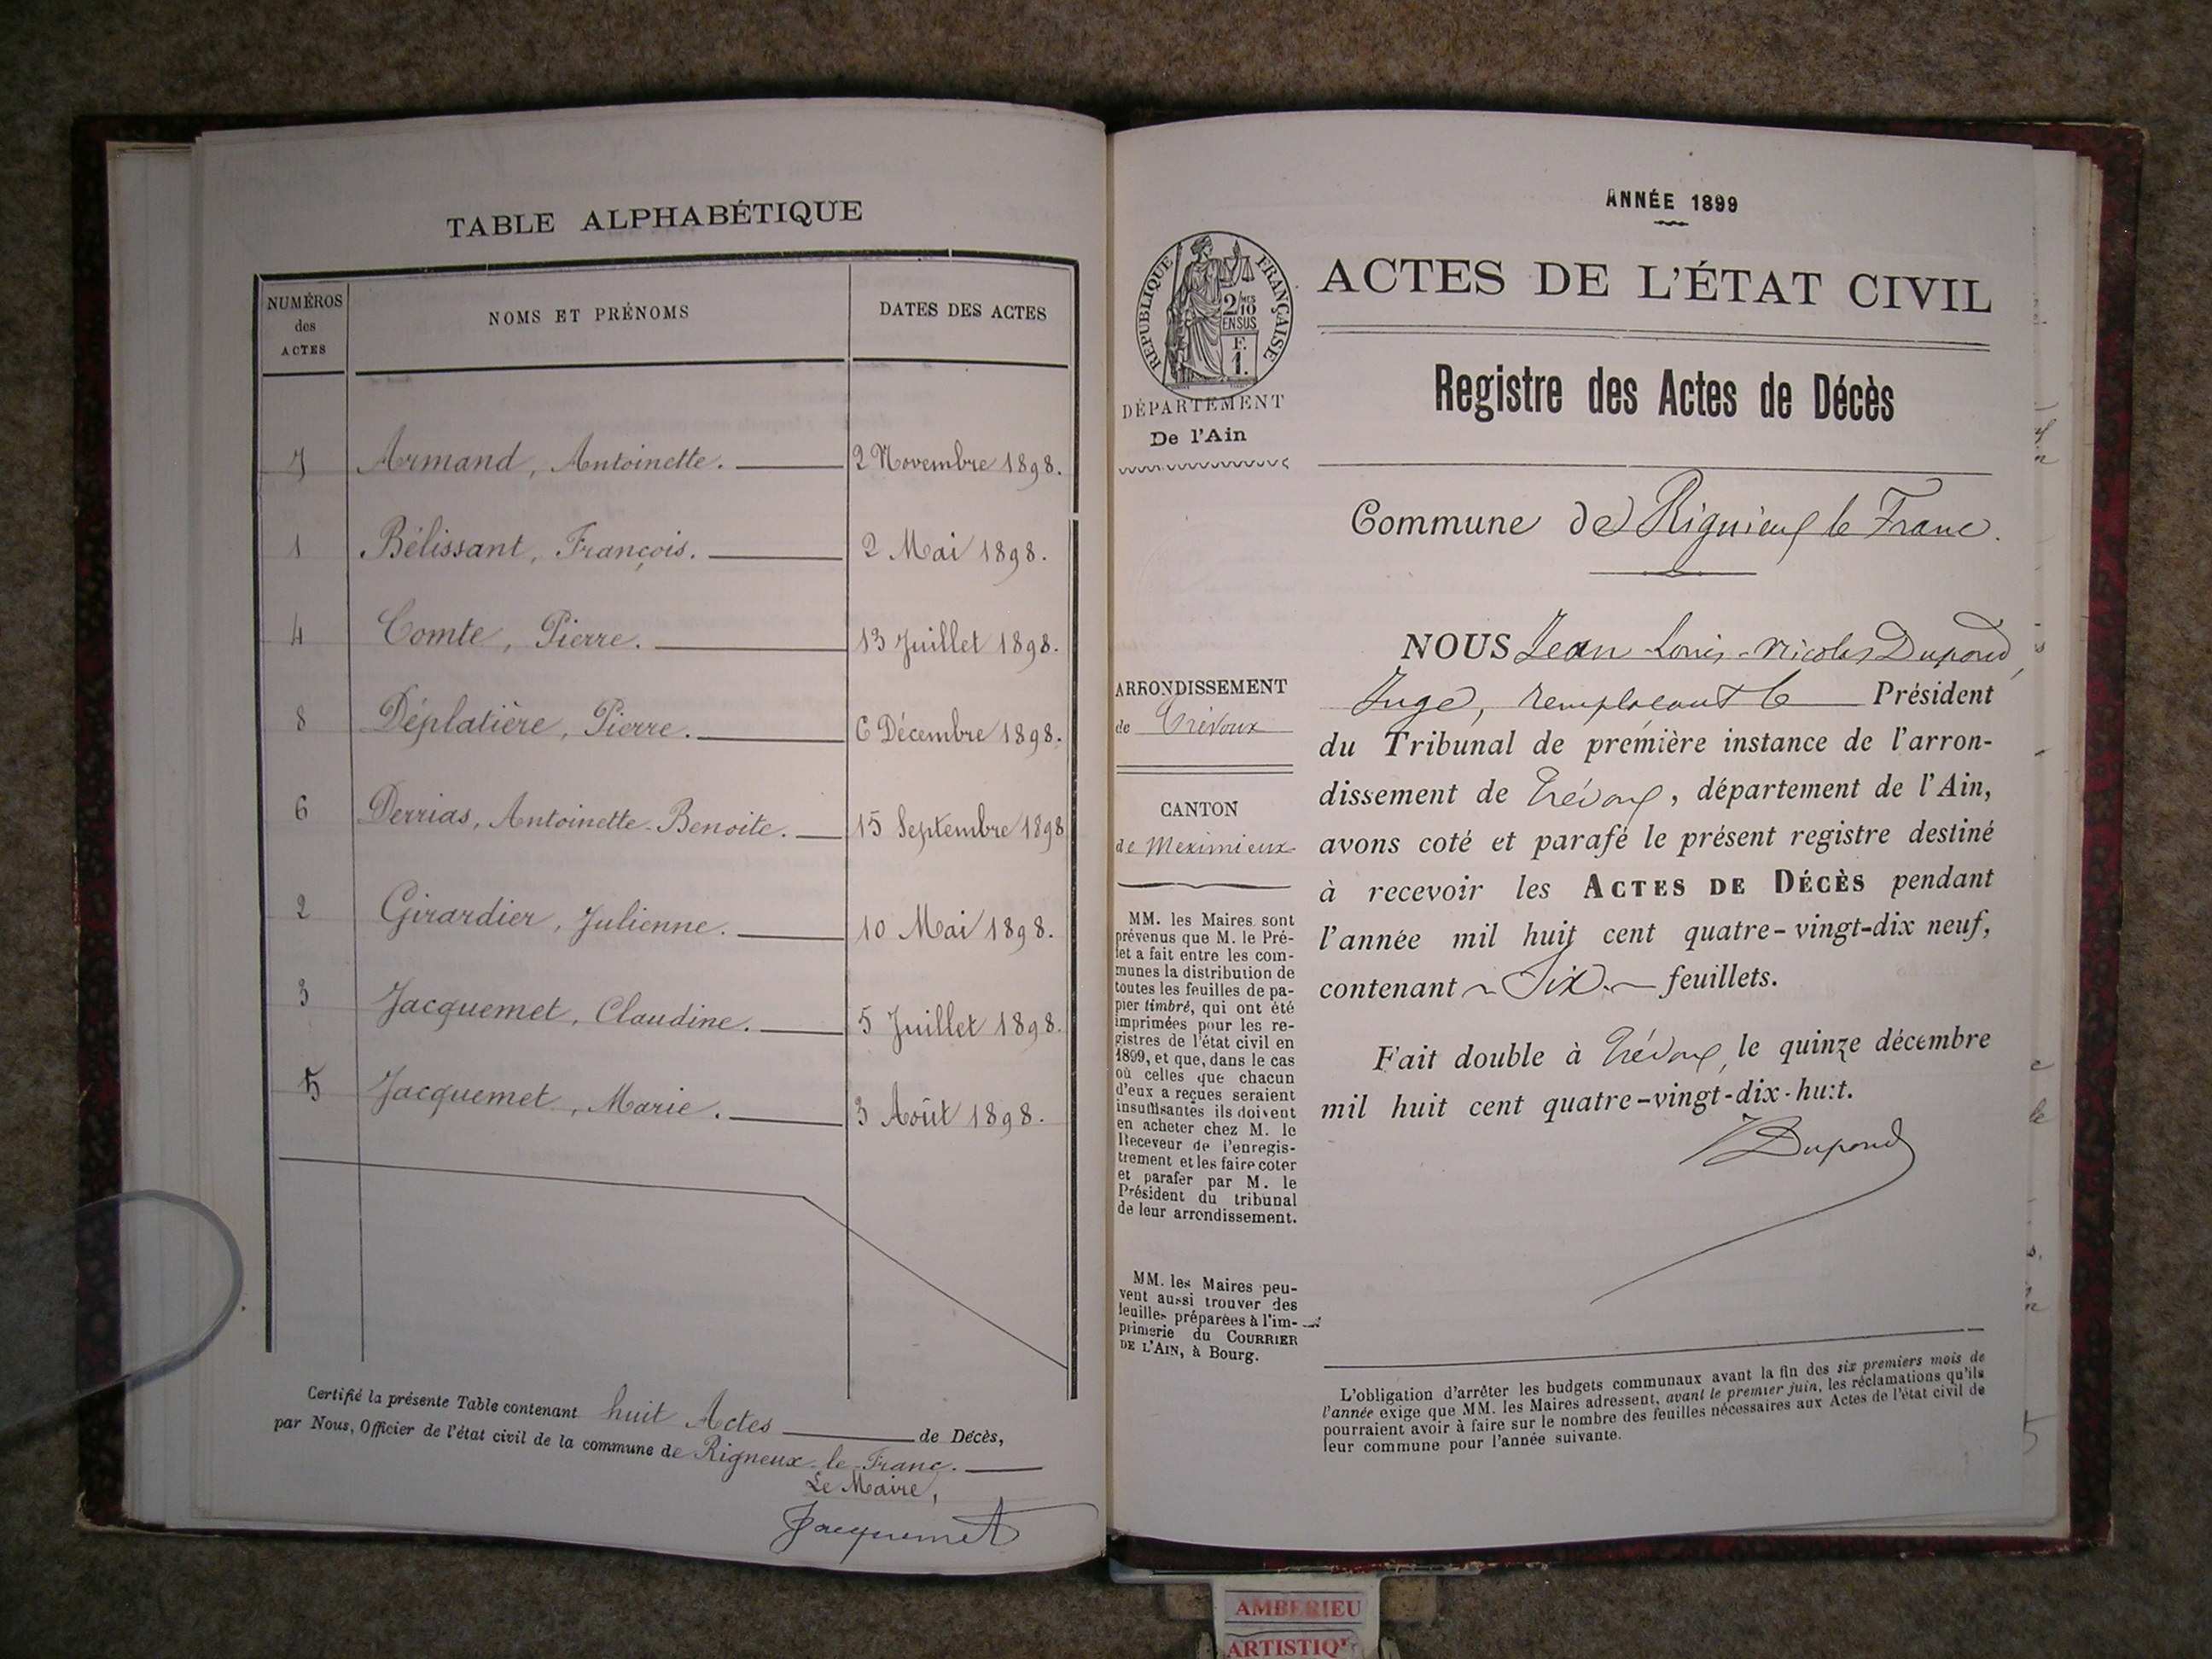 TABLE ALPHABÉTIQUE
NUMÉROS
des
ACTES
NOMS ET PRÉNOMS
DATES DES ACTES
7 Armand, Antoinette. 2 Novembre 1898.
1 Bélissant, François. 2 Mai 1898.
4 Comte, Pierre. 13 Juillet 1898.
8 Déplatière, Pierre. 6 Décembre 1898.
6 Derrias, Antoinette-Benoite. 15 Septembre 1898
2 Girardier, Julienne. 10 Mai 1898.
3 Jacquemet, Claudine. 5 Juillet 1898.
5 Jacquemet, Marie. 3 Août 1898.
Certifié la présente Table contenant huit Actes de Décès,
par Nous, Officier de l'état civil de la commune de Rigneux-le-Franc.
Le Maire,
Jacquemet
ANNÉE 1899
RÉPUBLIQUE FRANÇAISE
2/10 MES
EN SUS
F.
1.
DÉPARTEMENT
De l'Ain
ARRONDISSEMENT
de Trévoux
CANTON
de Meximieux
MM. les Maires sont
prévenus que M. le Pré-
fet a fait entre les com-
munes la distribution de
toutes les feuilles de pa-
pier timbré, qui ont été
imprimées pour les re-
gistres de l'état civil en
1899, et que, dans le cas
où celles que chacun
d'eux a reçues seraient
insuffisantes ils doivent
en acheter chez M. le
Receveur de l'enregis-
trement et les faire coter
et parafer par M. le
Président du tribunal
de leur arrondissement.
MM. les Maires peu-
vent aussi trouver des
feuilles préparées à l'im-
primerie du COURRIER
DE L'AIN, à Bourg.
ACTES DE L'ÉTAT CIVIL
Registre des Actes de Décès
Commune de Rignieux le Franc.
NOUS Jean-Louis-Nicolas Dupond,
Juge, remplaçant le Président
du Tribunal de première instance de l'arron-
dissement de Trévoux, département de l'Ain,
avons coté et parafé le présent registre destiné
à recevoir les ACTES DE DÉCÈS pendant
l'année mil huit cent quatre-vingt-dix neuf,
contenant Six feuillets.
Fait double à Trévoux, le quinze décembre
mil huit cent quatre-vingt-dix-huit.
Dupond
L'obligation d'arrêter les budgets communaux avant la fin des six premiers mois de
l'année exige que MM. les Maires adressent, avant le premier juin, les réclamations qu'ils
pourraient avoir à faire sur le nombre des feuilles nécessaires aux Actes de l'état civil de
leur commune pour l'année suivante.
AMBERIEU
ARTISTIQ